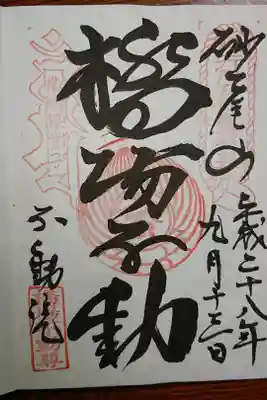 砂尾山
平成二十八年
九月十三日
橋場不動
不動院